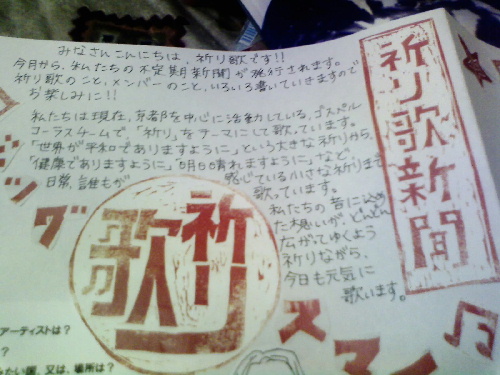 祈り歌新聞
みなさんこんにちは、祈り歌です!!
今月から、私たちの不定期新聞が発行されます。
祈り歌のこと、メンバーのこと、いろいろ書いていきますので
お楽しみに!!
私たちは現在、京都を中心に活動している、ゴスペル
コーラスチームで、「祈り」をテーマにして歌っています。
「世界が平和でありますように」という大きな祈りから、
「健康でありますように」「明日晴れますように」など、
日常、誰もが感じている小さな祈りまで
歌っています。
私たちの音に
た想いが、どんどん
広がってゆくよう
祈りながら、
今日も元気に
歌います。
祈り歌
アーティストは?
?
たい国、又は、場所は?